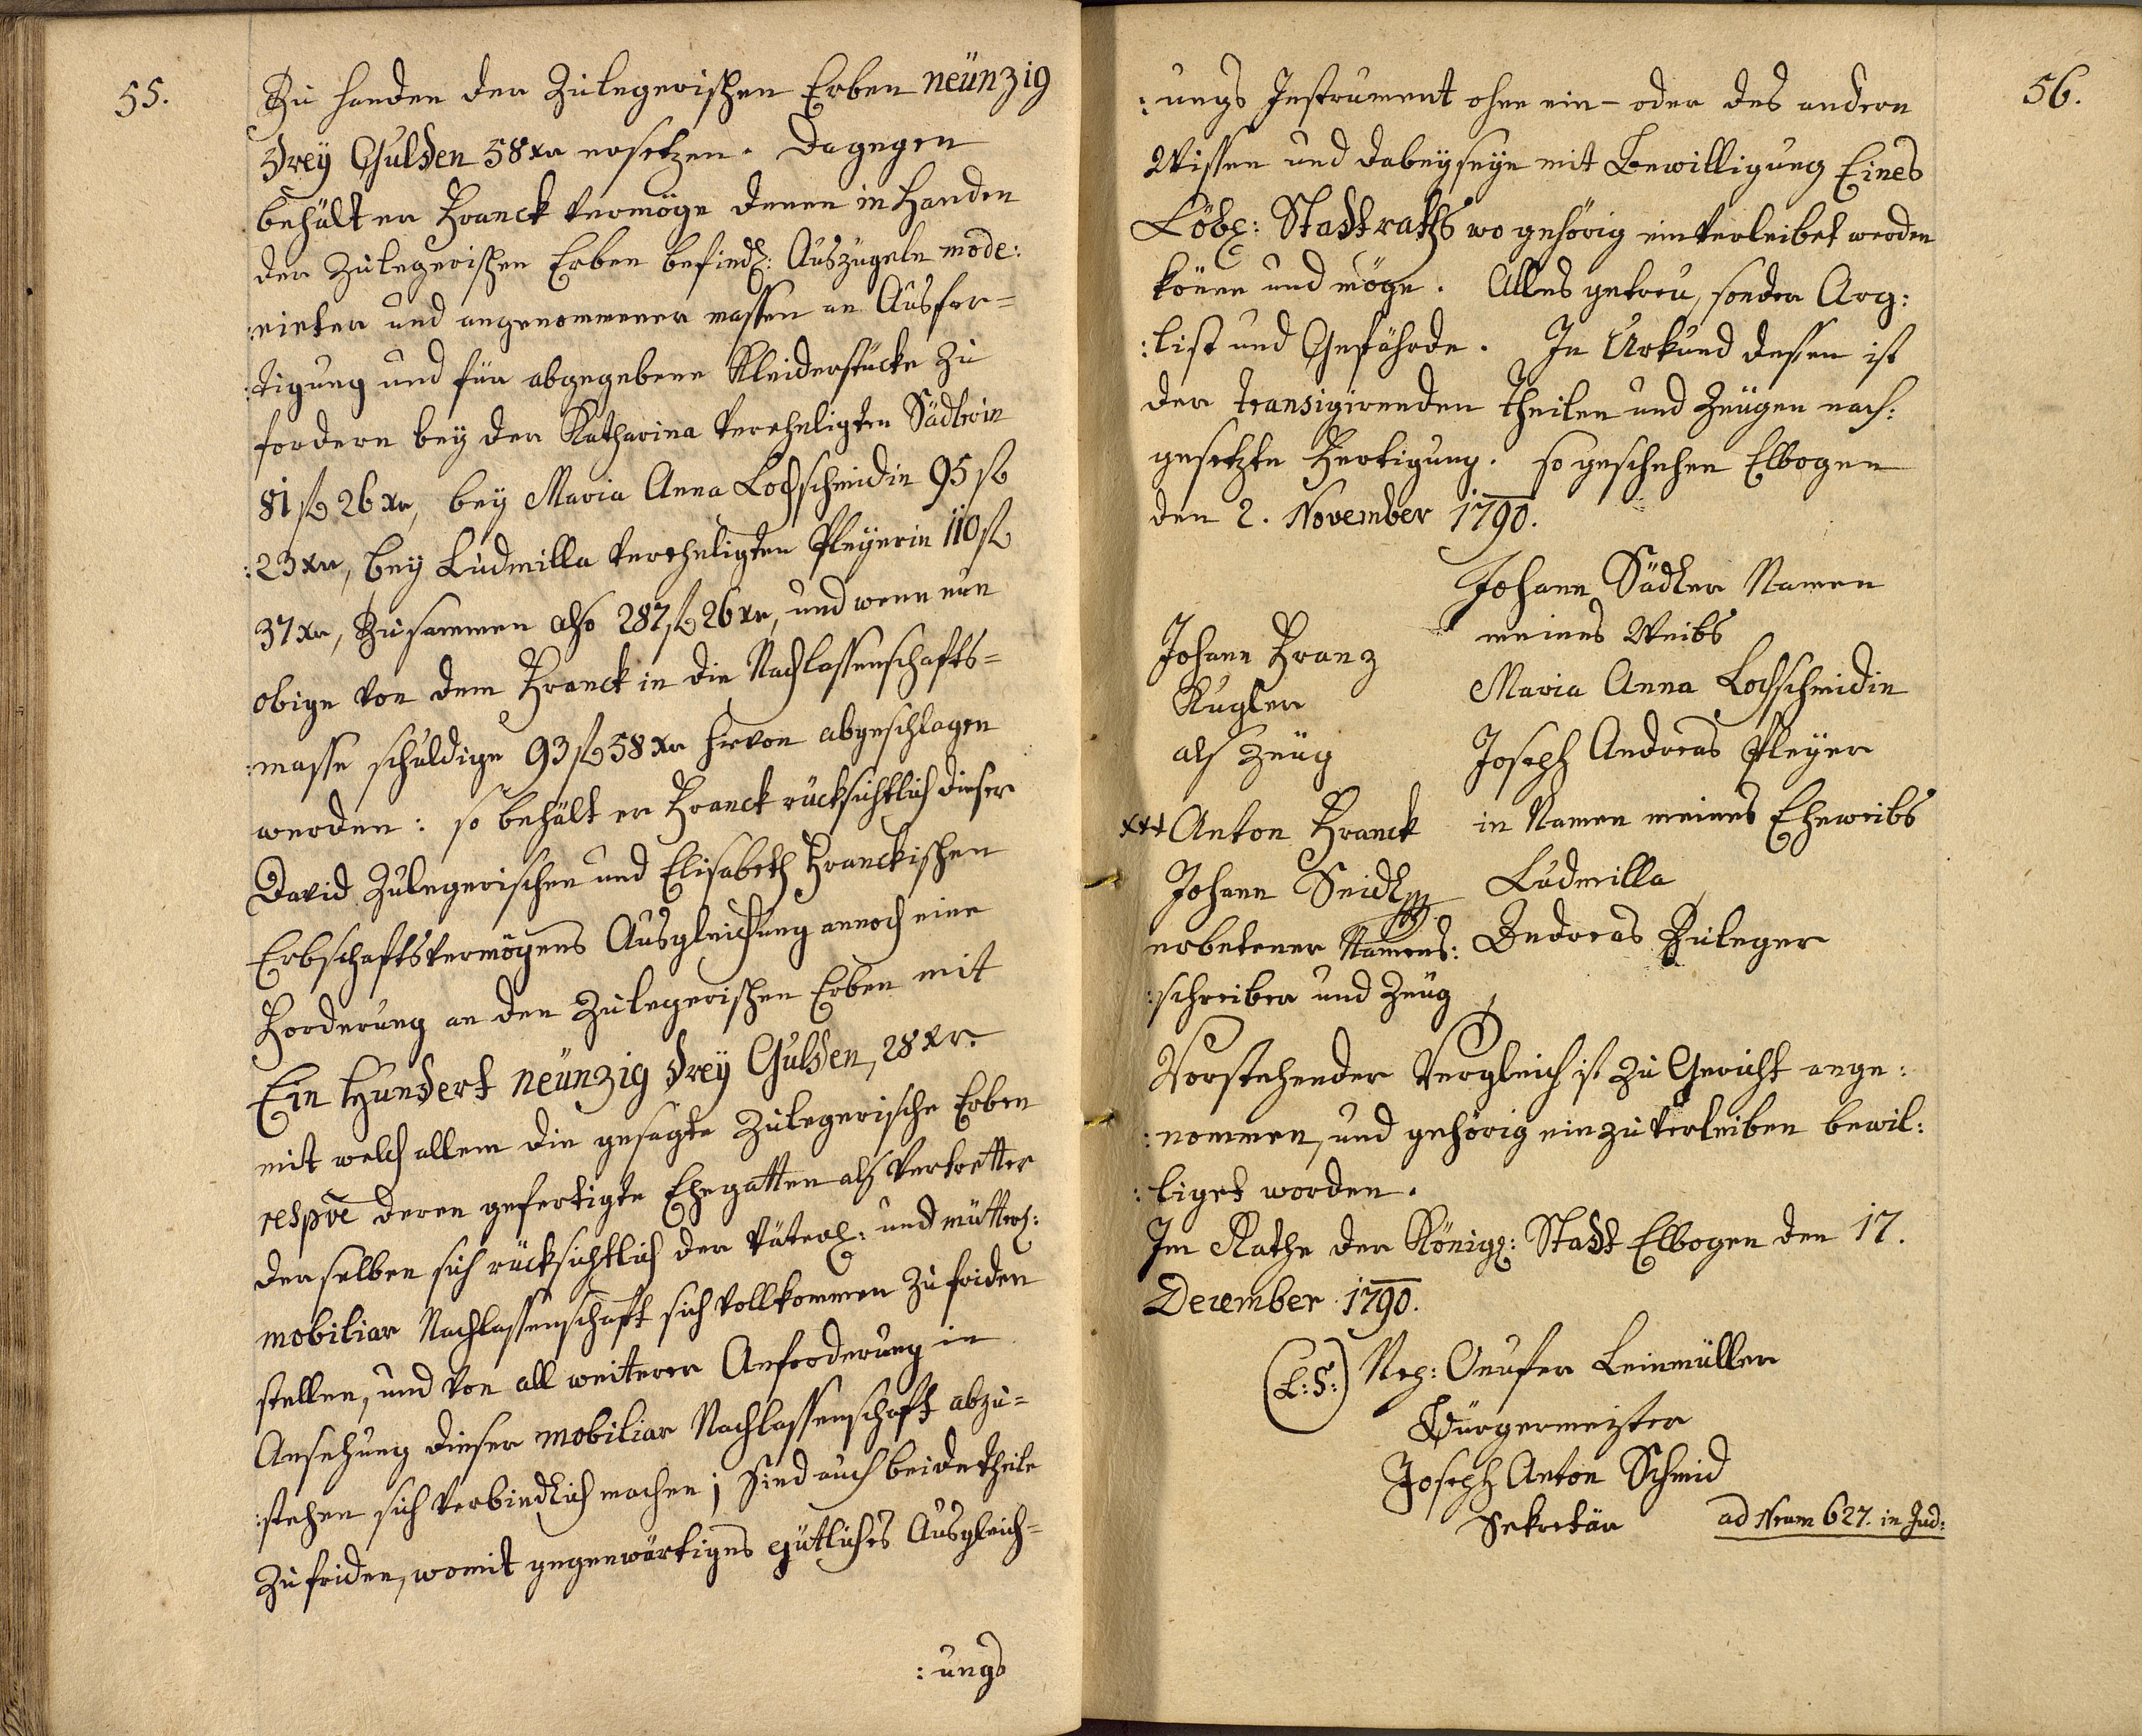 55.
Zu Handen der Zulegerischen Erben neünzig
drey Gulden 58 xr ersetzen. Dagegen
behält er Franck vermöge denen in Handen
der Zulegerischen Erben befindl: Auszügeln mode:
:rirter und angenommener massen an Ausfer=
:tigung und für abgegebene Kleiderstücke zu
fordern bey der Katharina verehligten Sädlerin
81 fl 26 xr, bey Maria Anna Lochschmidin 95 fl
:23 xr, bey Ludmilla verehligten Pleyerin 110 fl
37 xr, Zusammen also 287 fl 26 xr, und wenn nun
obige von dem Franck in die Nachlassenschafts=
:masse schuldige 93 fl 58 xr hievon abgeschlagen
werden: so behält er Franck rücksichtlich dieser
David Zulegerischen und Elisabeth Franckischen
Erbschaftsvermögens Ausgleichung annoch eine
Forderung an den Zulegerischen Erben mit
Ein Hundert neünzig drey Gulden, 28 xr.
mit welch allem die gesagte Zulegerische Erben
respve deren gefertigte Ehegatten als Vertretter
derselben sich rücksichtlich der Väterl: und mütterl:
mobiliar Nachlassenschaft sich vollkommen zufriden
stellen, und von all weiterer Anforderung in
Ansehung dieser mobiliar Nachlassenschaft abzu=
:stehen sich verbindlich machen; Sind auch beide theile
Zufriden, womit gegenwärtiges gütliches Ausgleich=
:ungs
56.
:ungs Instrument ohne ein- oder des andern
Wissen und dabeyseyn mit Bewilligung Eines
Löbl: Stadtraths wo gehörig einverleibet werden
könne und möge. Alles getreu, sonder Arg:
:list und Gefährde. In Urkund dessen ist
der transigirenden Theilen und Zeugen nach:
gesetzte Fertigung. so geschehen Elbogen
den 2. November 1790.
Johann Sädler Namen
meines Weibs
Johann Franz
Kugler
als Zeug
Maria Anna Lochschmidin
Joseph Andreas Pleyer
in Namen meines Eheweibs
Ludmilla
xxx Anton Franck
Johann Seidl
erbetener Namens:
:schreiber und Zeug
Andreas Zuleger
Vorstehender Vergleich ist zu Gericht ange:
:nommen, und gehörig einzuverleiben bewil:
:liget worden.
Im Rathe der Königl: Stadt Elbogen den 17.
December 1790.
(L:S:) Nep: Onufer Leinmüller
Bürgermeister
Joseph Anton Schmid
Sekretär
ad Nrum 627. in Jud: